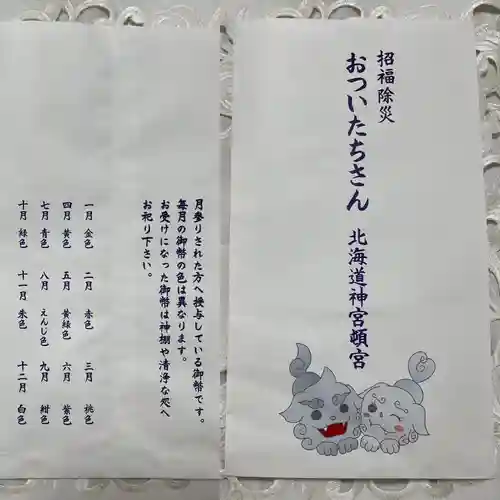 招福除災
おついたちさん 北海道神宮頓宮
月参りされた方へ授与している御幣です。
毎月の御幣の色は異なります。
お受けになった御幣は神棚や清浄な処へ
お祀り下さい。
一月 金色 二月 赤色 三月 桃色
四月 黄色 五月 黄緑色 六月 紫色
七月 青色 八月 えんじ色 九月 紺色
十月 緑色 十一月 朱色 十二月 白色